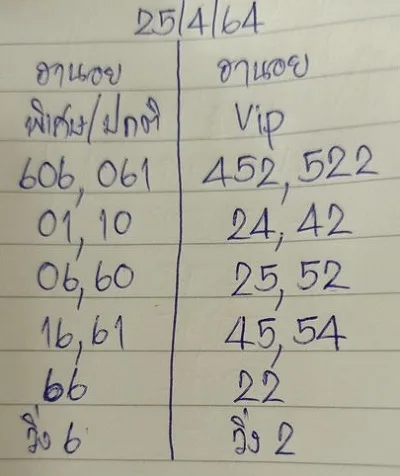 25/4/64
ฮานอย ฮานอย
พิเศษ/ปกติ Vip
606, 061 452, 522
01, 10 24, 42
06, 60 25, 52
16, 61 45, 54
66 22
วิ่ง 6 วิ่ง 2